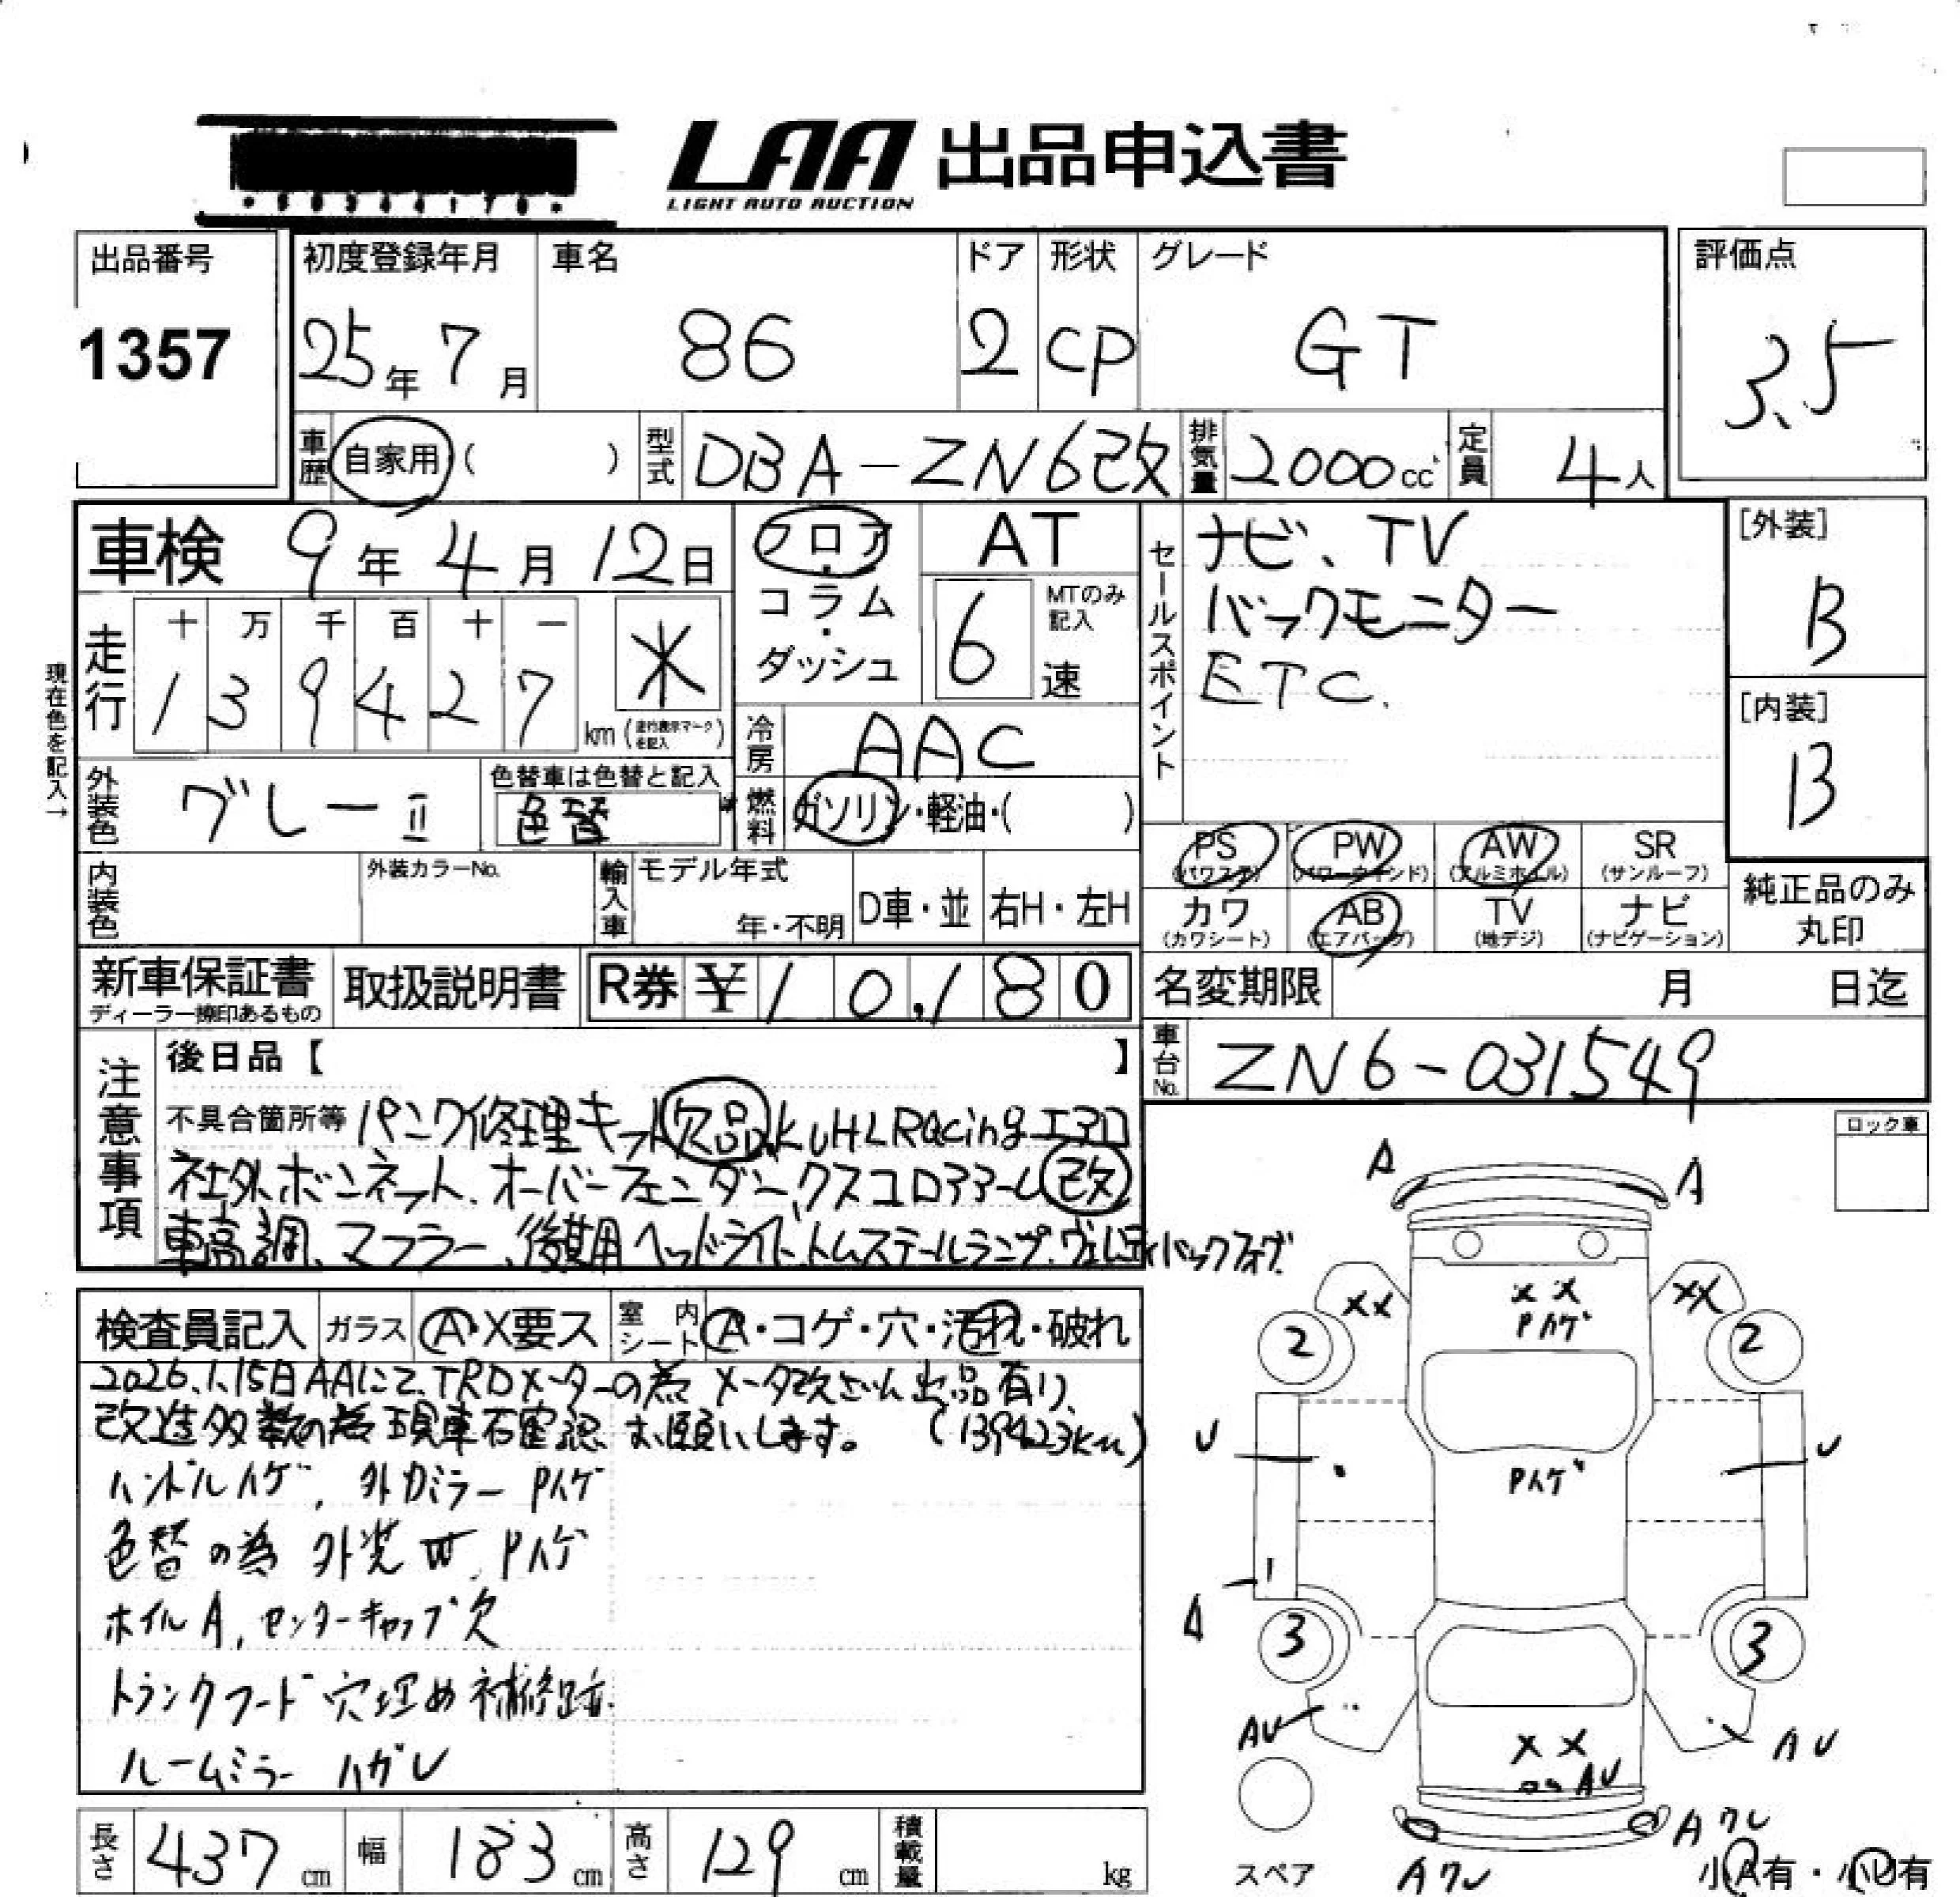 LAA 出品申込書
LIGHT AUTO AUCTION
出品番号
1357
初度登録年月
25年 7月
車名
86
ドア
2
形状
CP
グレード
GT
評価点
3.5
車歴 自家用 ( )
型式 DBA-ZN6改
排気量 2000cc
定員 4人
車検 9年 4月 12日
フロア・コラム・ダッシュ
AT
6速
MTのみ記入
セールスポイント
ナビ、TV
バックモニター
ETC.
[外装]
B
[内装]
B
現在色を記入→
走行
十 万 千 百 十 一
1 3 9 4 2 7 km
(走行表示マークを記入)
冷房 AAC
外装色 グレーⅡ
色替車は色替と記入
色替
燃料 ガソリン・軽油・( )
PS (パワステ)
PW (パワーウィンド)
AW (アルミホイル)
SR (サンルーフ)
カワ (カワシート)
AB (エアバッグ)
TV (地デジ)
ナビ (ナビゲーション)
純正品のみ丸印
内装色
外装カラーNo.
輸入車
モデル年式
年・不明
D車・並
右H・左H
新車保証書
ディーラー捺印あるもの
取扱説明書
R券 ¥10,180
名変期限 月 日迄
車台No. ZN6-031549
注意事項
後日品【 】
不具合箇所等 パンク修理キット欠品、KUHLRacingエアロ
社外ボンネット、オーバーフェンダー、クスコロアアーム改
車高調、マフラー、後期用ヘッドライト、トムステールランプ、ヴェレティバックフォグ
ロック車
検査員記入
ガラス A・X要ス
室内シート A・コゲ・穴・汚れ・破れ
2026.1.15日AAにて、TRDメーターの為 メータ改ざん出品有り、
改造多数の為現車確認お願いします。 (139423km)
ハンドルハゲ、外Dミラー Pハゲ
色替の為 外装 W、Pハゲ
ホイルA、センターキャップ欠
トランクフード穴埋め補修跡
ルームミラー ハガレ
A A
XX
XX Pハゲ
XX
2 2
U U
Pハゲ
A
3 3
AU AU
XX
AU
Aワレ
Aワレ
スペア
小A有・小U有
長さ 437cm
幅 183cm
高さ 129cm
積載量 kg